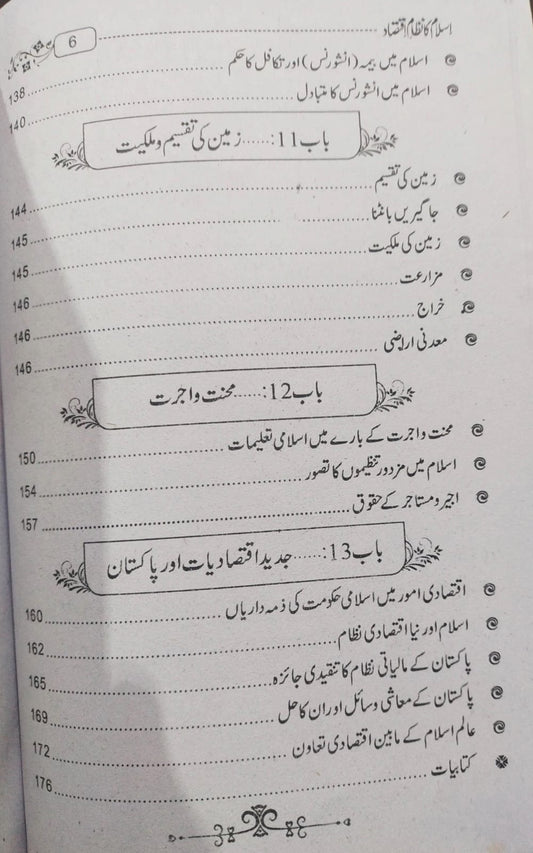 اسلام کا نظام اقتصاد ........ 6
اسلام میں بیمہ (انشورنس) اور تکافل کا حکم ........ 138
اسلام میں انشورنس کا متبادل ........ 140
باب 11: ...... زمین کی تقسیم و ملکیت
زمین کی تقسیم ........ 144
جاگیریں بانٹنا ........ 145
زمین کی ملکیت ........ 145
مزارعت ........ 146
خراج ........ 146
معدنی اراضی ........ 146
باب 12: ...... محنت و اجرت
محنت و اجرت کے بارے میں اسلامی تعلیمات ........ 150
اسلام میں مزدور تنظیموں کا تصور ........ 154
اجیر و مستاجر کے حقوق ........ 157
باب 13: ...... جدید اقتصادیات اور پاکستان
اقتصادی امور میں اسلامی حکومت کی ذمہ داریاں ........ 160
اسلام اور نیا اقتصادی نظام ........ 162
پاکستان کے مالیاتی نظام کا تنقیدی جائزہ ........ 165
پاکستان کے معاشی وسائل اور ان کا حل ........ 169
عالم اسلام کے مابین اقتصادی تعاون ........ 172
کتابیات ........ 176